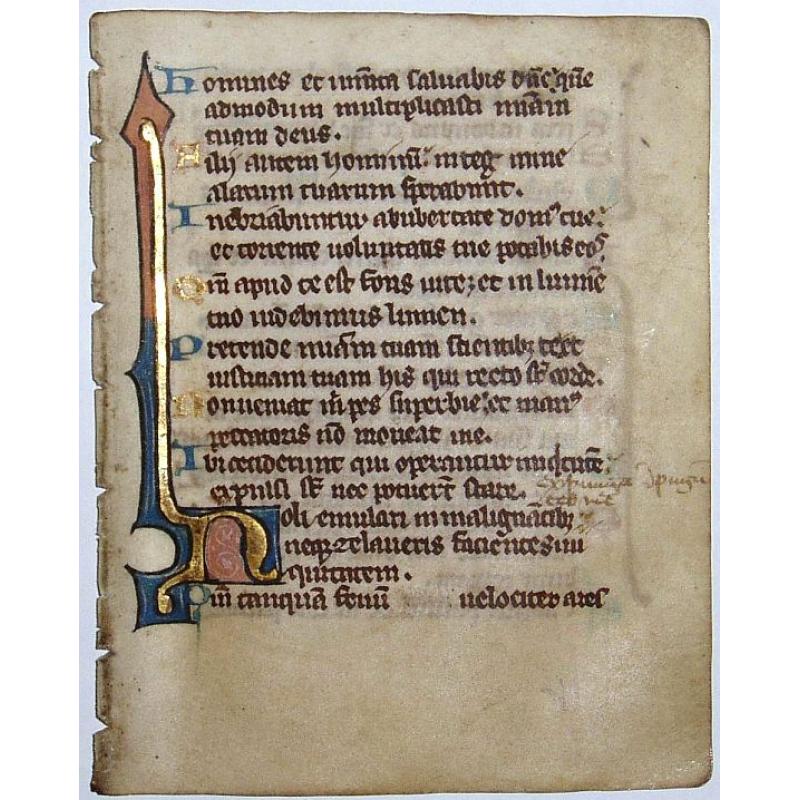 Homines et iumta saluabis dn̄e que
admodum multiplicasti miam̄
tuam deus.
Filij autem hominū: in teg mine
alarum tuarum sperabunt.
Inebriabuntur ab ubertate dom⁹ tue:
et torrente uoluptatis tue potabis eos.
Qm̄ apud te est fons uite: et in lumine
tuo uidebimus lumen.
Pretende miam̄ tuam scientibꝫ te et
iustitiam tuam his qui recto st̄ corde.
Non ueniat m̄ pes superbie: et man⁹
peccatoris nō moueat me.
Ibi ceciderunt qui operantur iniquitatē:
expulsi st̄ nec potuerūt stare.
Noli emulari in malignātibꝫ
neqꝫ zelaueris facientes ini
quitatem.
Qm̄ tanquā fenū uelociter ares